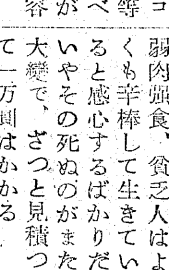 コ
等
べ
が
容
弱肉強食、貧乏人はよ
くも辛棒して生きてい
ると感心するばかりだ
いやその死ぬのがまた
大變で、ざつと見積つ
て一万圓はかかる